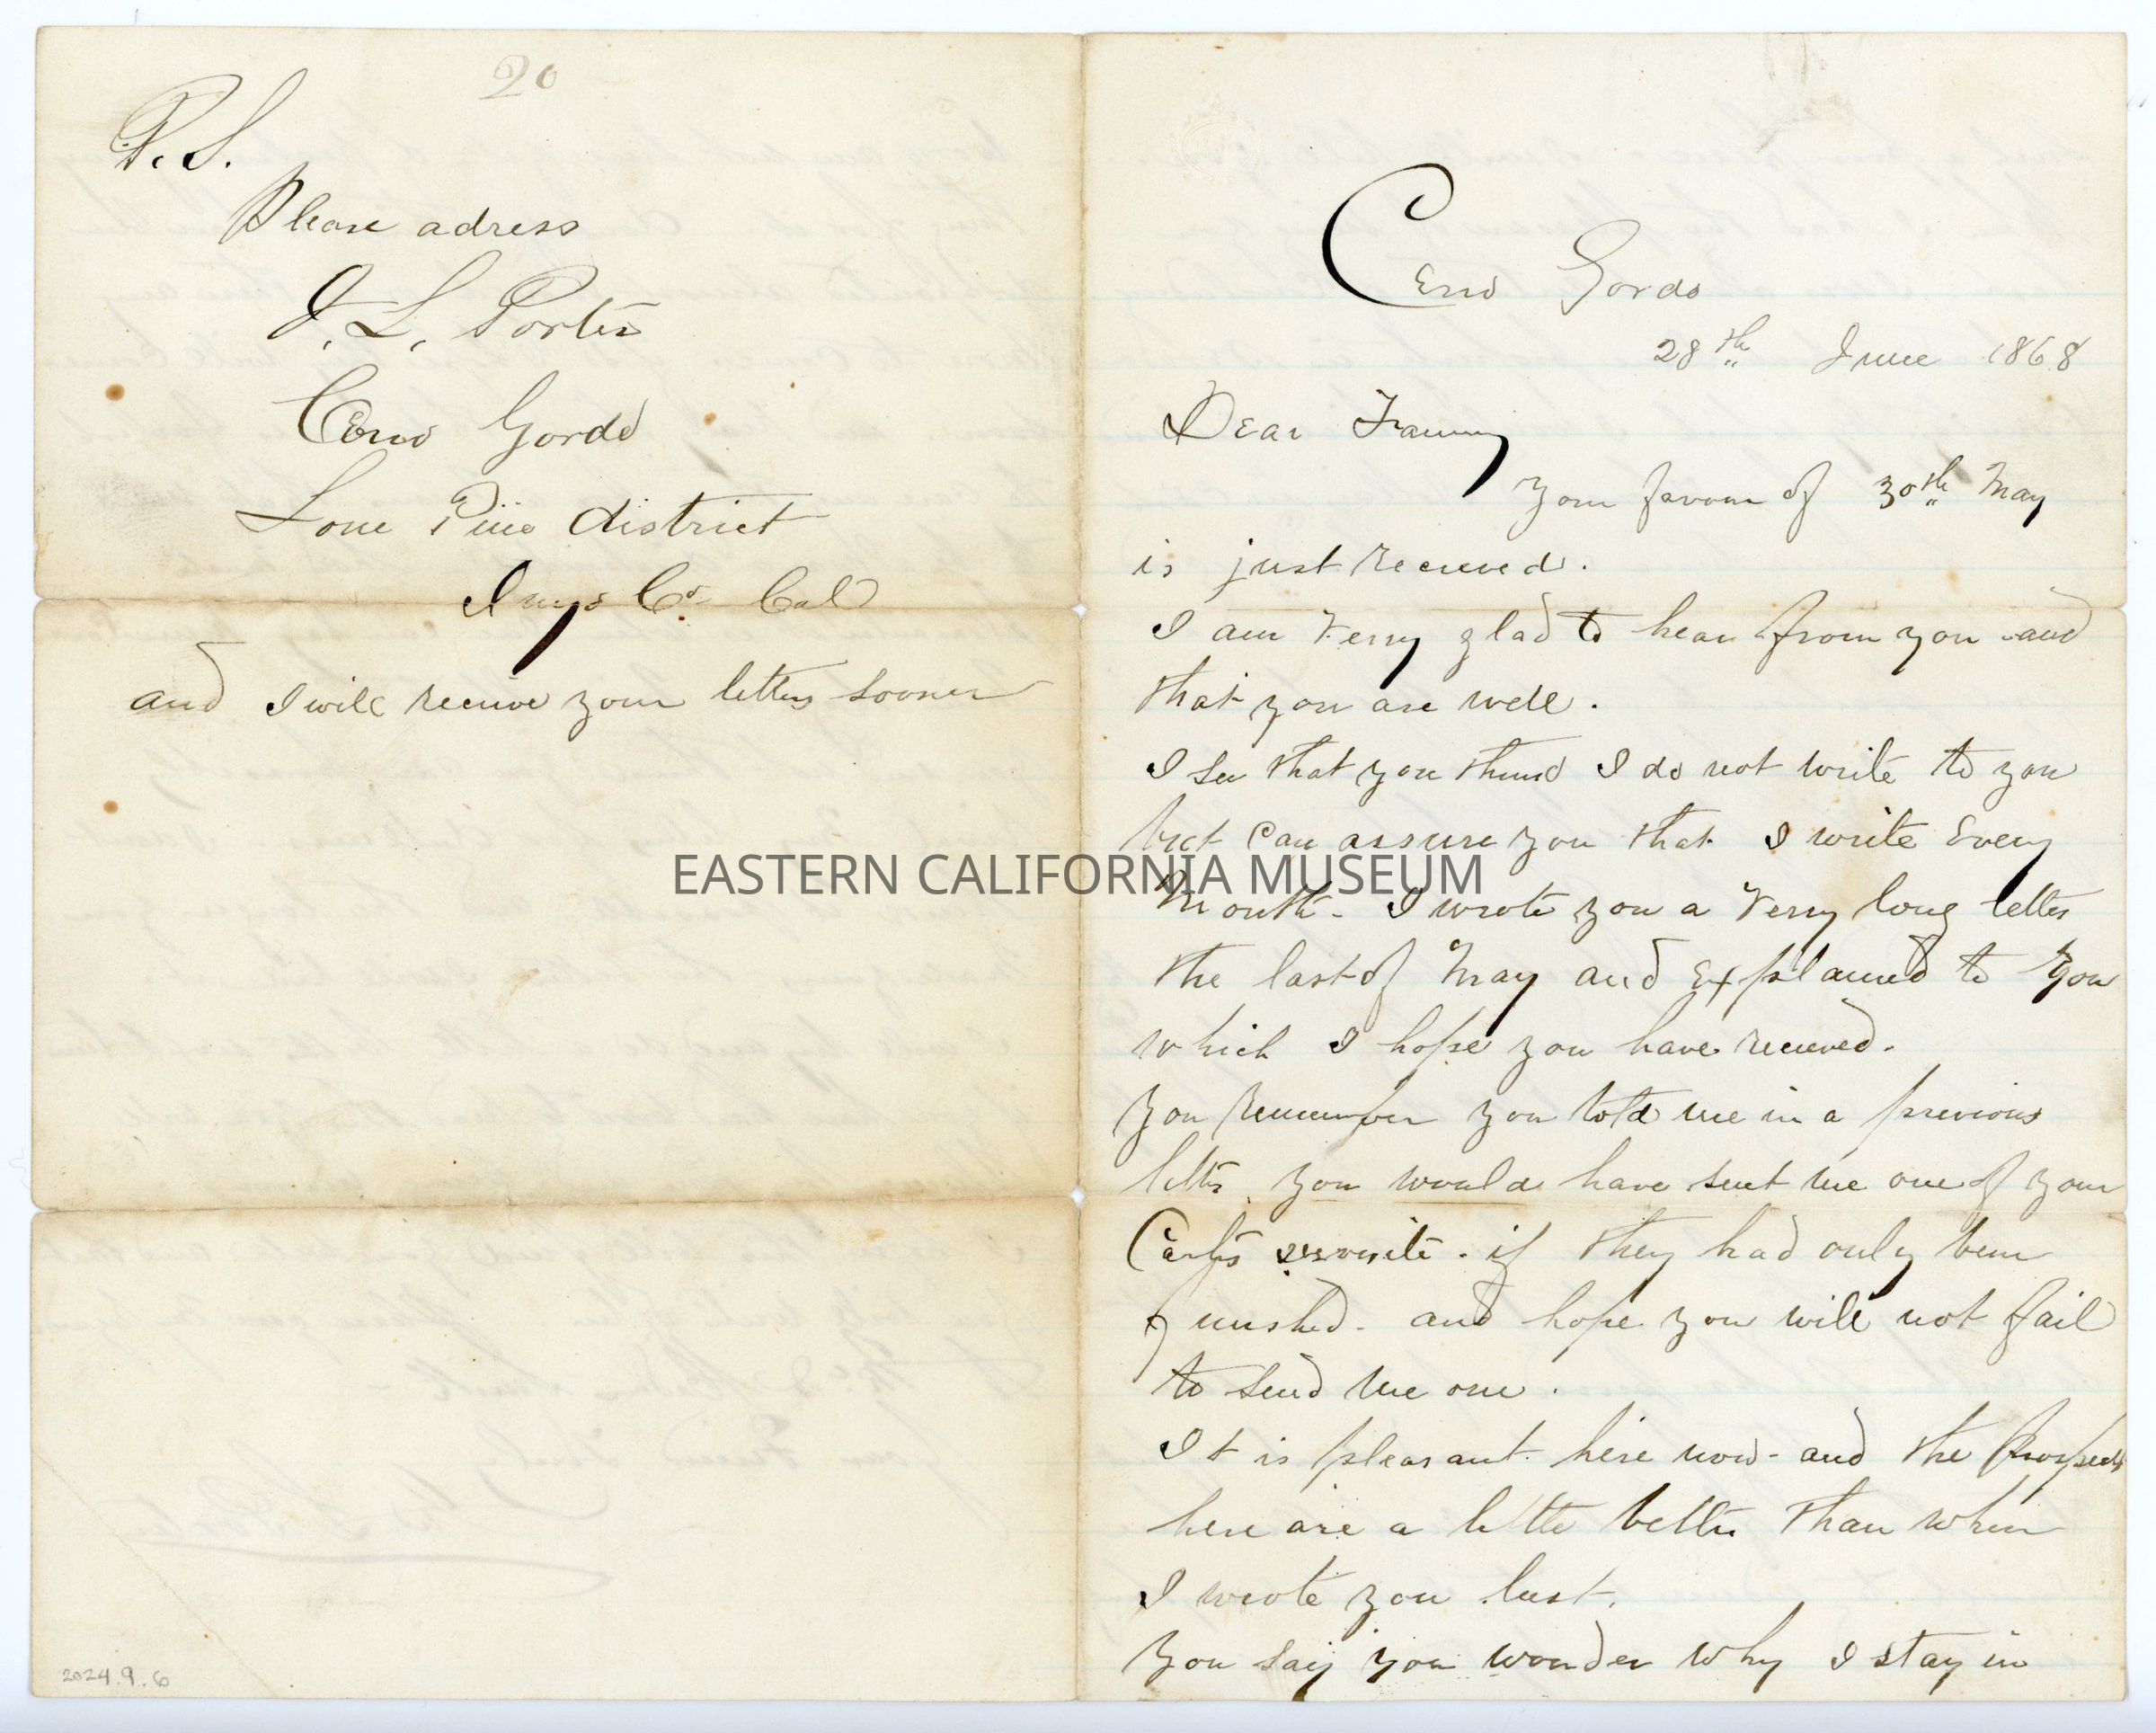 20
P.S.
Please adress
J. L. Porter
Cerro Gordo
Lone Pine district
Inyo Co Cal
and I will receive your letters sooner
2024.9.6
Cerro Gordo
28th June 1868
Dear Fanny
your favour of 30th May
is just received.
I am verry glad to hear from you and
that you are well.
I see that you think I do not write to you
but can assure you that I write Every
Month - I wrote you a verry long letter
the last of May and Explained to you
which I hope you have received.
you remember you told me in a previous
letter you would have sent me one of your
Carte visite. if they had only been
finished. and hope you will not fail
to send me one.
It is pleasant here now - and the prospects
here are a little better than when
I wrote you last.
you say you wonder why I stay in
EASTERN CALIFORNIA MUSEUM